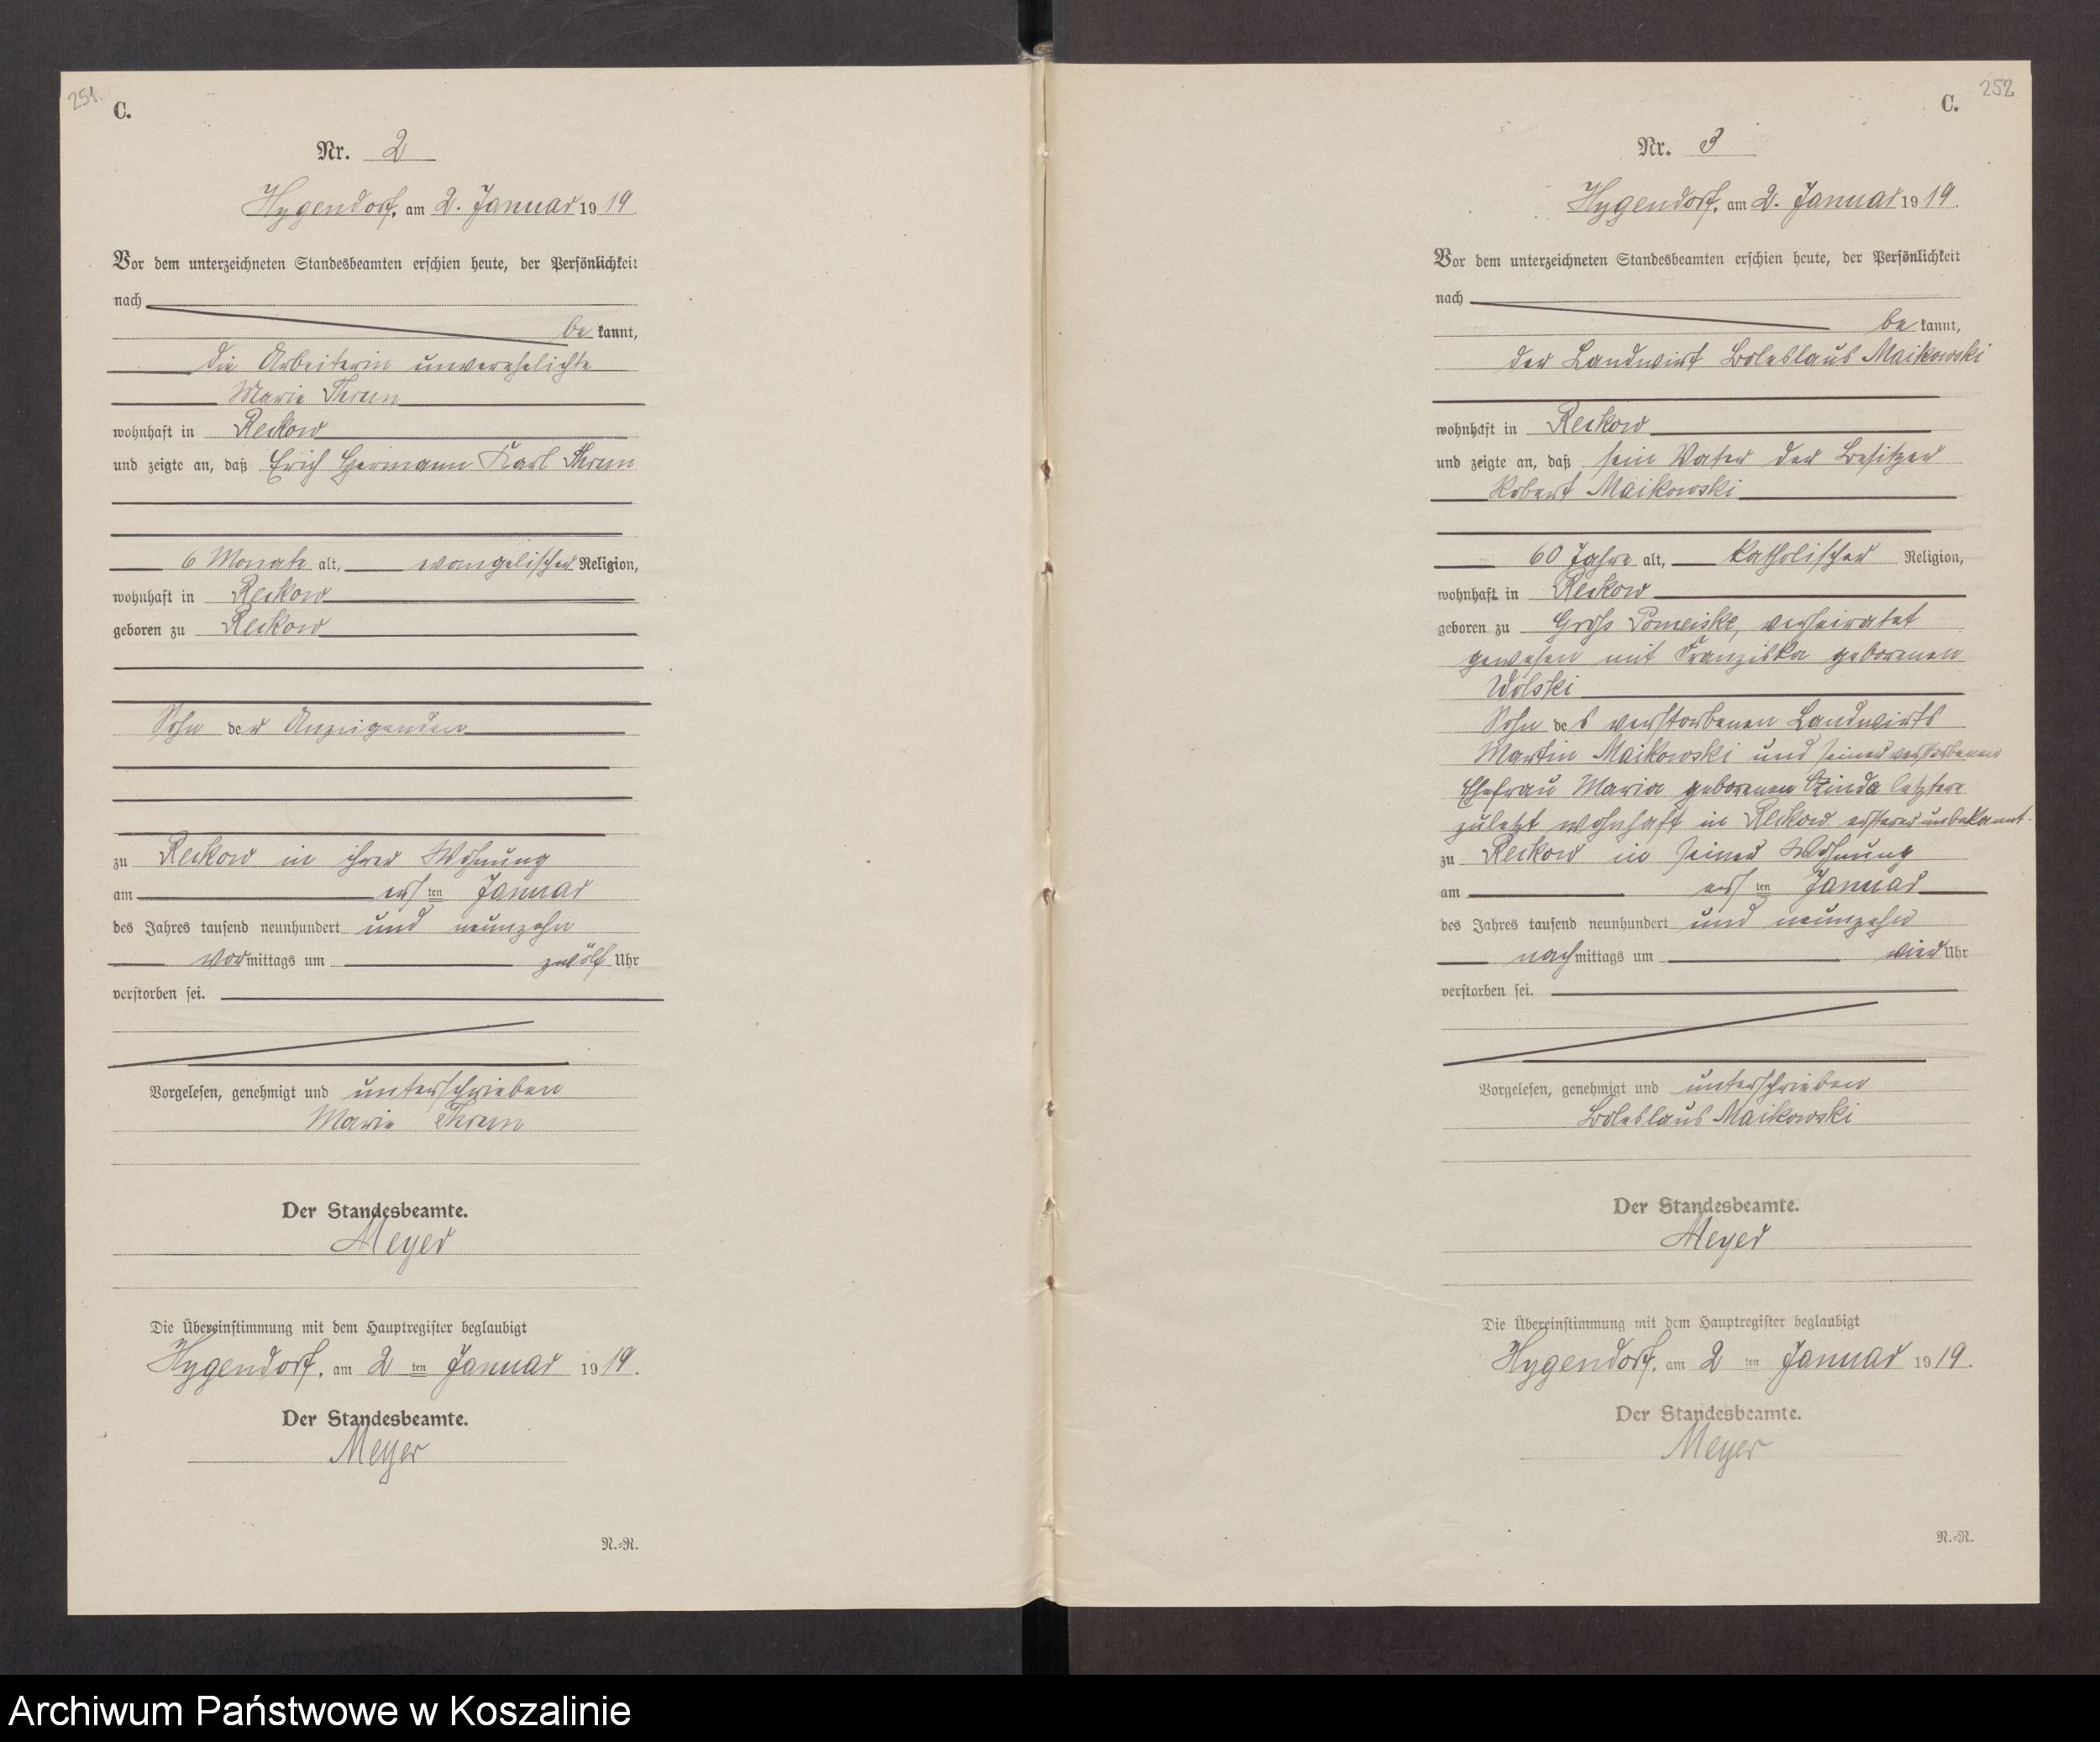 251.
C.
Nr. 2
Hygendorf, am 2. Januar 1919
Vor dem unterzeichneten Standesbeamten erschien heute, der Persönlichkeit
nach
be kannt,
die Arbeiterin unverehelichte
Marie Thrun
wohnhaft in Reckow
und zeigte an, daß Erich Hermann Karl Thrun
6 Monate alt, evangelischer Religion,
wohnhaft in Reckow
geboren zu Reckow
Sohn der Anzeigenden
zu Reckow in ihrer Wohnung
am ersten Januar
des Jahres tausend neunhundert und neunzehn
vormittags um zwölf Uhr
verstorben sei.
Vorgelesen, genehmigt und unterschrieben
Marie Thrun
Der Standesbeamte.
Meyer
Die Übereinstimmung mit dem Hauptregister beglaubigt
Hygendorf, am 2 ten Januar 1919.
Der Standesbeamte.
Meyer
N.=R.
252
C.
Nr. 3
Hygendorf, am 2. Januar 1919.
Vor dem unterzeichneten Standesbeamten erschien heute, der Persönlichkeit
nach
be kannt,
der Landwirt Boleslaus Maikowski
wohnhaft in Reckow
und zeigte an, daß sein Vater der Besitzer
Robert Maikowski
60 Jahre alt, katholischer Religion,
wohnhaft in Reckow
geboren zu Groß Pomeiske, verheiratet
gewesen mit Franziska geborenen
Wolski
Sohn des verstorbenen Landwirts
Martin Maikowski und seiner verstorbenen
Ehefrau Maria geborenen letztere
zuletzt wohnhaft in Reckow ersterer unbekannt.
zu Reckow in seiner Wohnung
am ersten Januar
des Jahres tausend neunhundert und neunzehn
nachmittags um vier Uhr
verstorben sei.
Vorgelesen, genehmigt und unterschrieben
Boleslaus Maikowski
Der Standesbeamte.
Meyer
Die Übereinstimmung mit dem Hauptregister beglaubigt
Hygendorf, am 2 ten Januar 1919.
Der Standesbeamte.
Meyer
N.=R.
Archiwum Państwowe w Koszalinie